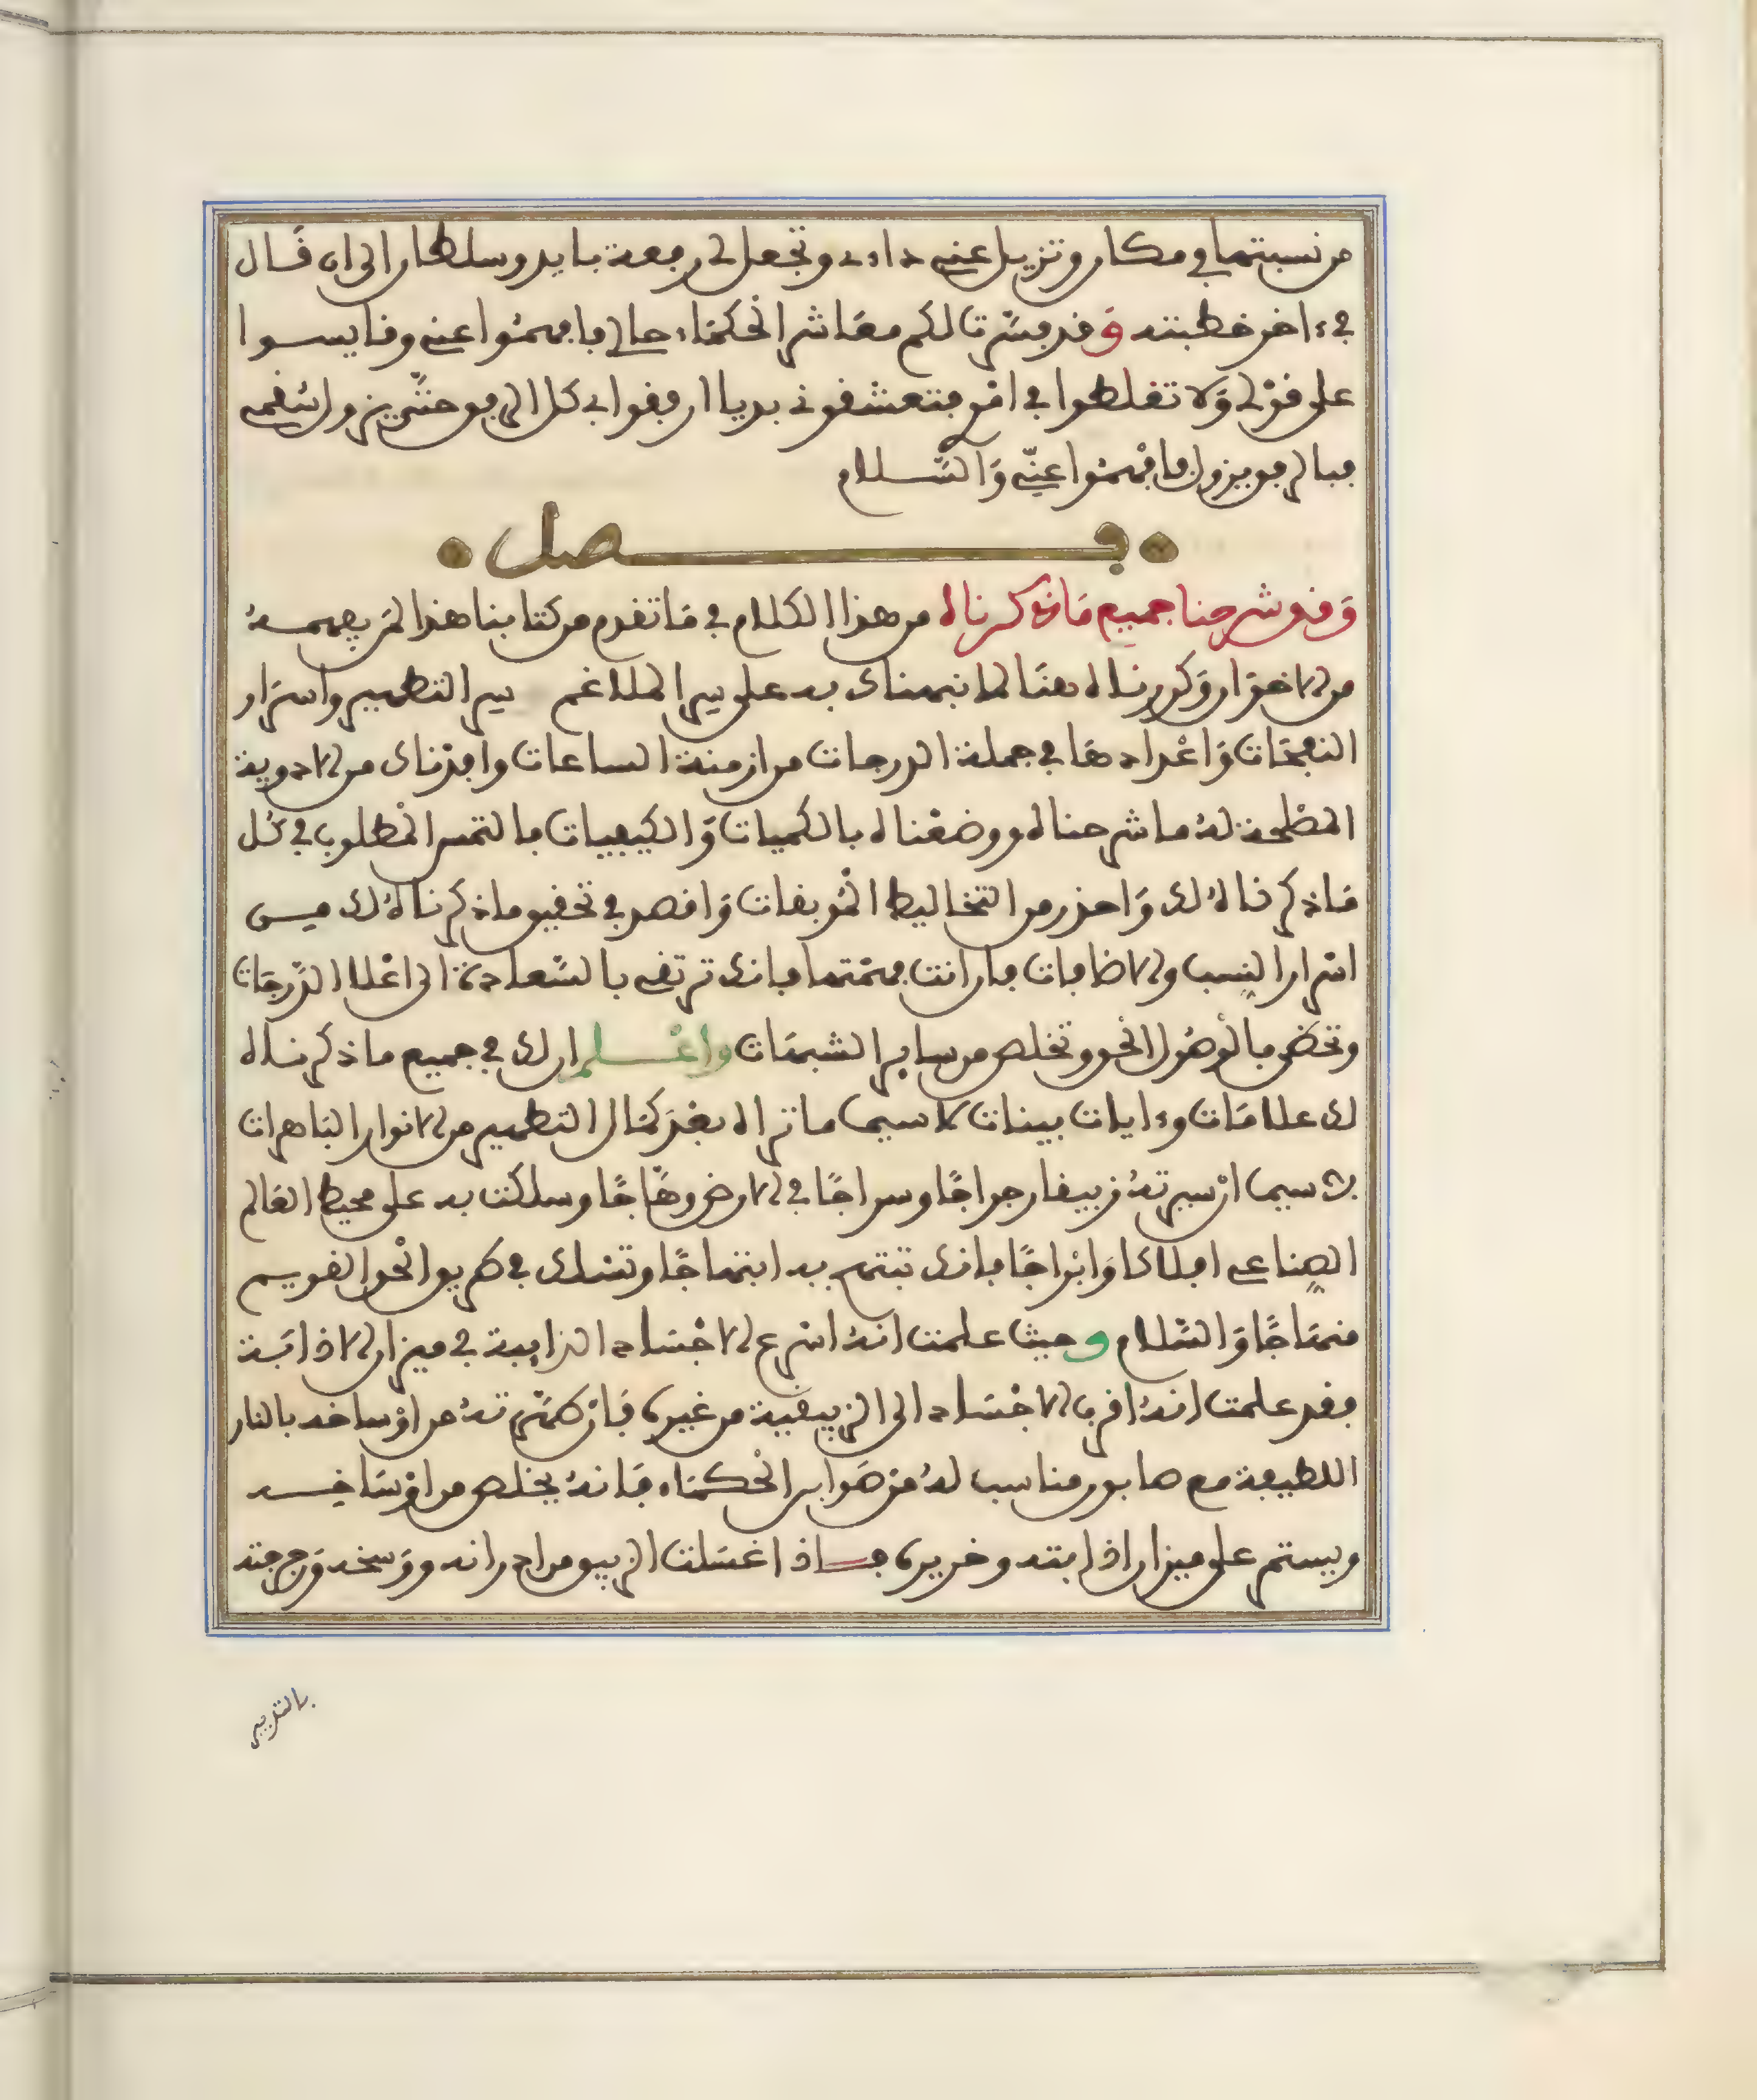 من نسبتها في مكان وتزيل عني داءي وتجعل لي رفعة بايد وسلطان الى ان قال
في ءاخر خطبته وقد فسّرت لكم معاشر الحكماء حالي فافهموا عني وقايسوا
على قولي ولا تغلطوا في امر فتعشقوني بديا ارفقوا بي كل الرفق
فبالرفق فافهموا عنّي والسّلام
فصل
وقد شرحنا جميع ما ذكرناه من هذا الكلام في ما تقدم من كتابنا هذا لمن يفهمه
من الاخوان وكررناه هنا لما نبهناك به على سر الملاغم سر التطهير واسرار
النفحات واعدادها في جملة الدرجات من ازمنة الساعات وافدناك من الادوية
المصلحة له ما شرحناه ووضعناه بالكميات والكيفيات فالتمس المطلوب في كل
ما ذكرناه لك واحذر من التخاليط الموبقات واقصد في تحقيق ما ذكرناه لك من
اسرار النسب والاضافات فان انت فهمتها فانك ترتقي بالسّعادة الى اعلا الدّرجات
وتحضى بالوصول الحق وتخلص من ساير الشبهات واعلم ان لك في جميع ما ذكرناه
لك علامات وءايات بينات لا سيما ما تراه بعد كمال التطهير من الانوار الباهرات
لا سيما ان سيرته زيبقا رجراجا وسراجا في الارض وهّاجا وسلكت به على محيط العالم
الصناعي افلاكا وابراجا فانك تبتهج به ابتهاجا وتسلك في طريق الحق القويم
منهاجا والسّلام وحيث علمت انه اسرع الاجساد الذايبة في ميزان الاذابة
فقد علمت انه اقرب الاجساد الى الزيبقية من غيره فان طهّرته من اوساخه بالنار
اللطيفة مع صابون مناسب له من صوابن الحكماء فانه يخلص من اوساخه
ويستمر على ميزان اذابته وخريره فاذا غسلت الزيبق من ادرانه ووسخه ومزجته
بالتدبير